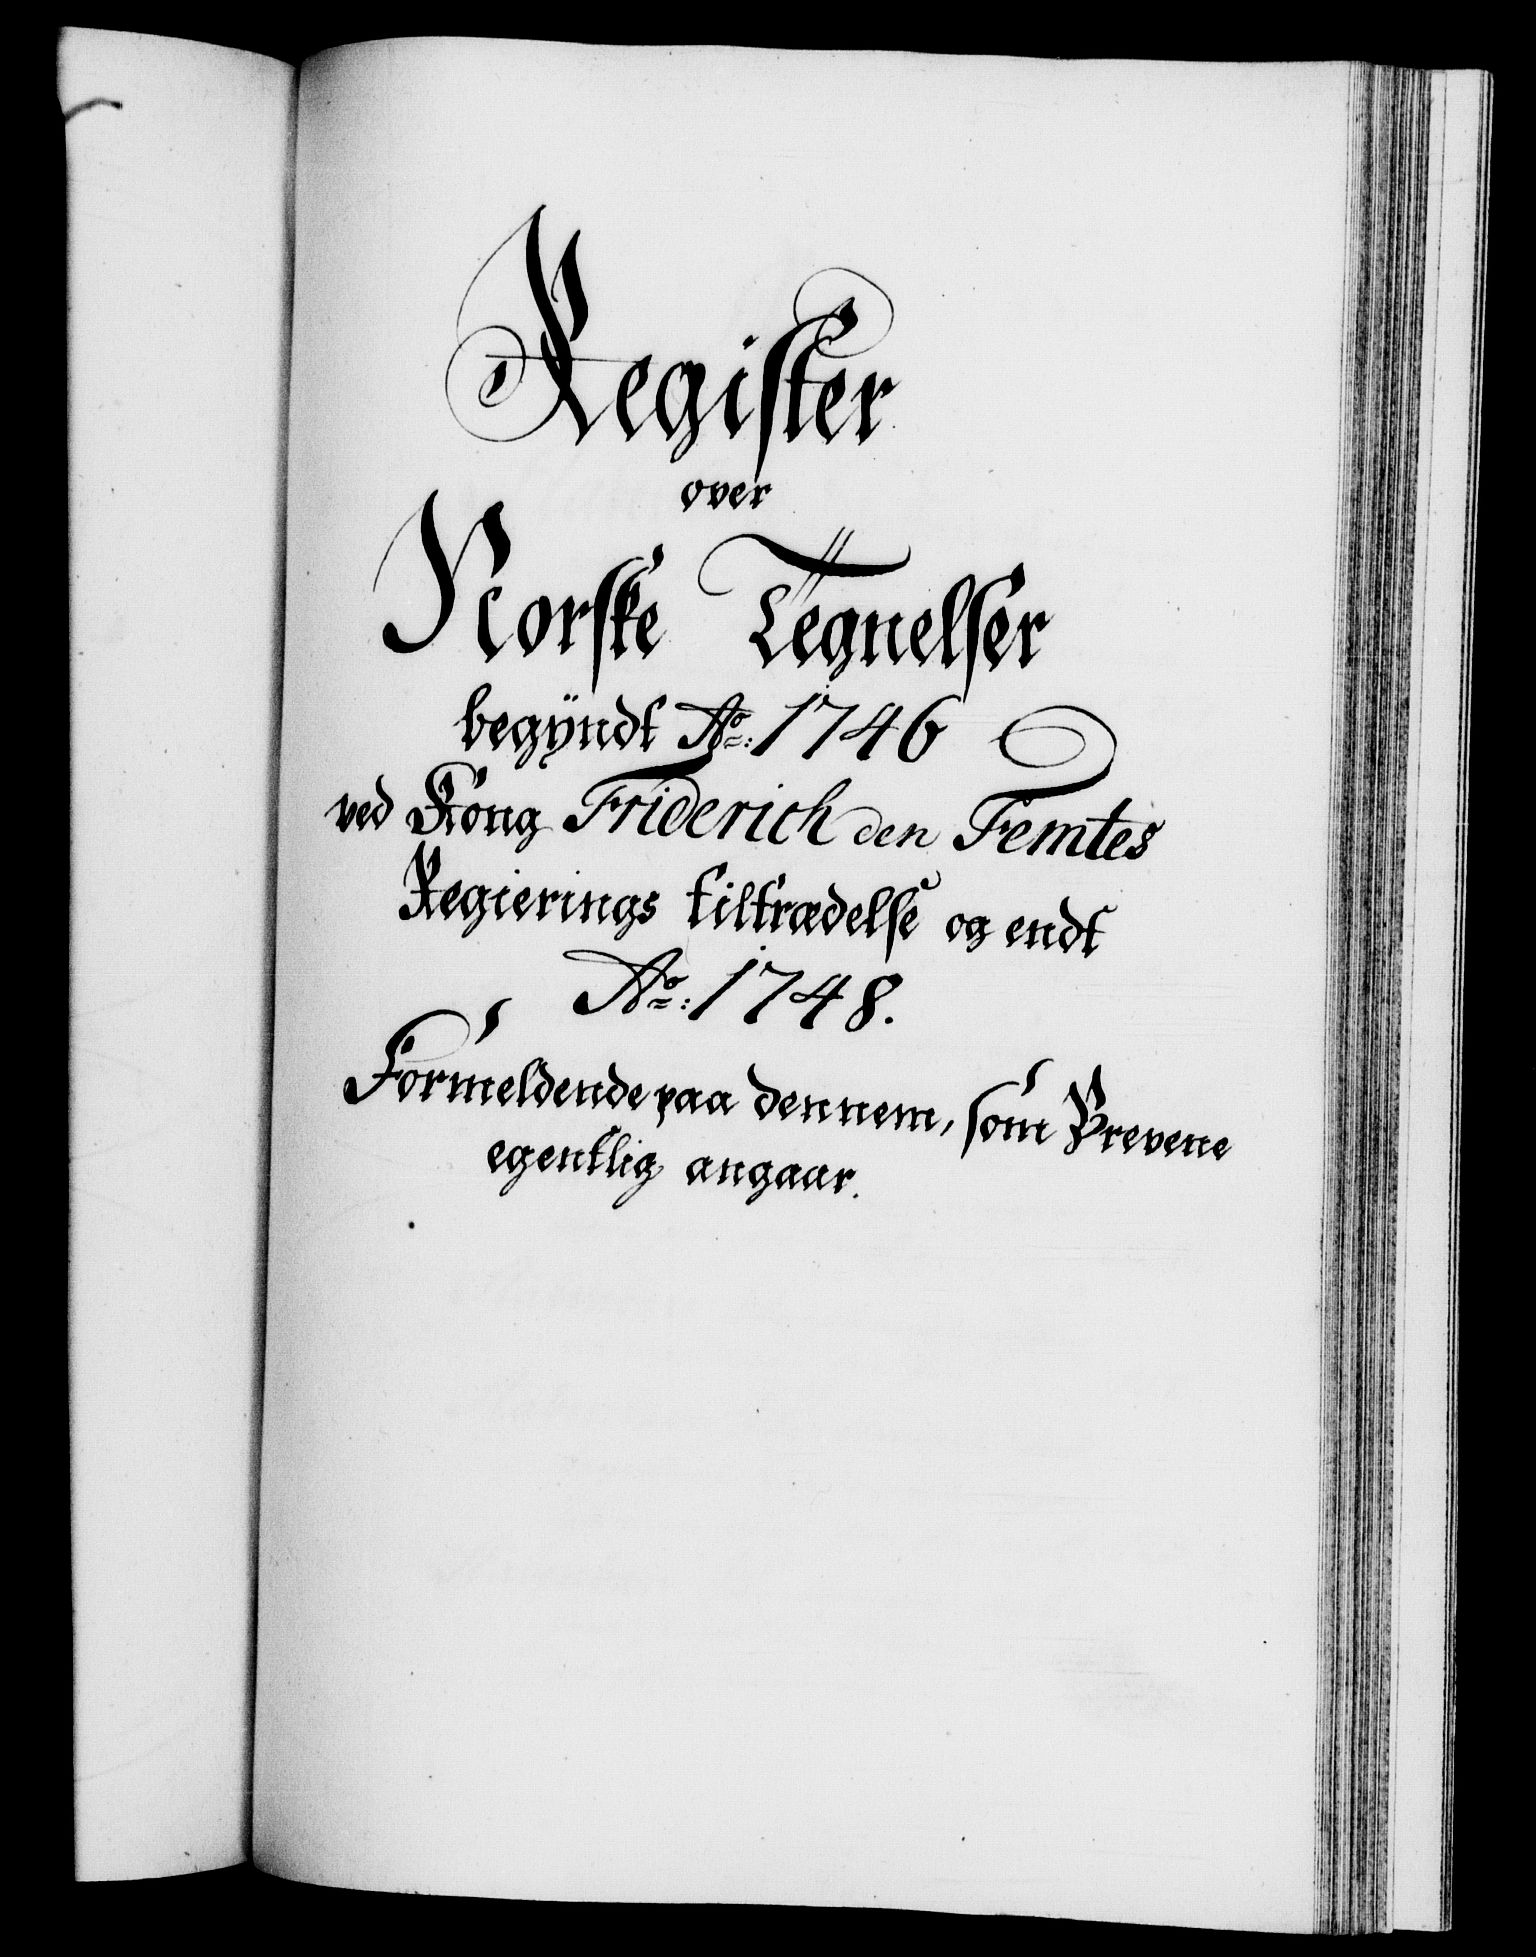 Register
over
Norske Tegnelser
begÿndt Ao: 1746
ved Kong Friderich den Femtes
Regierings tiltrædelse og endt
Ao: 1748.
Formeldende paa dennem, som Brevene
egentlig angaar.